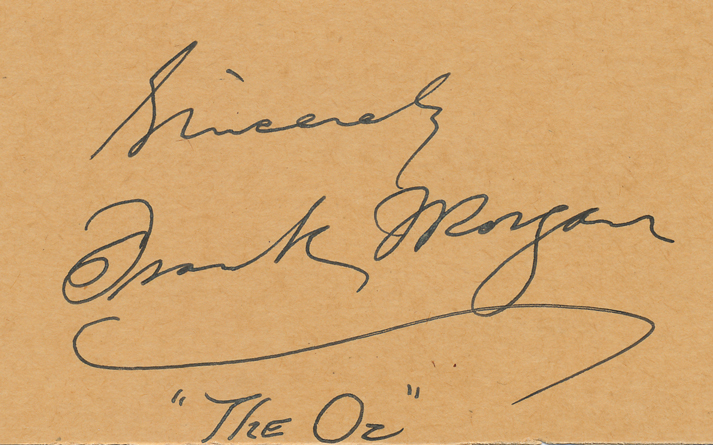 Sincerely
Frank Morgan
"The Oz"